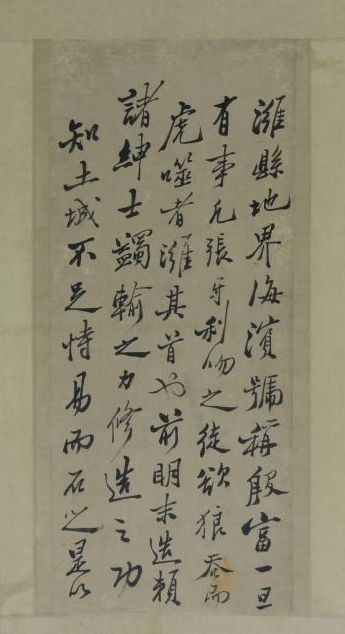 濰縣地界海濱號稱殷富一旦
有事凡張牙利吻之徒欲狼吞而
虎噬者濰其首也前明末造賴
諸紳士蠲輸之力修造之功
知土城不足恃易而石之是以